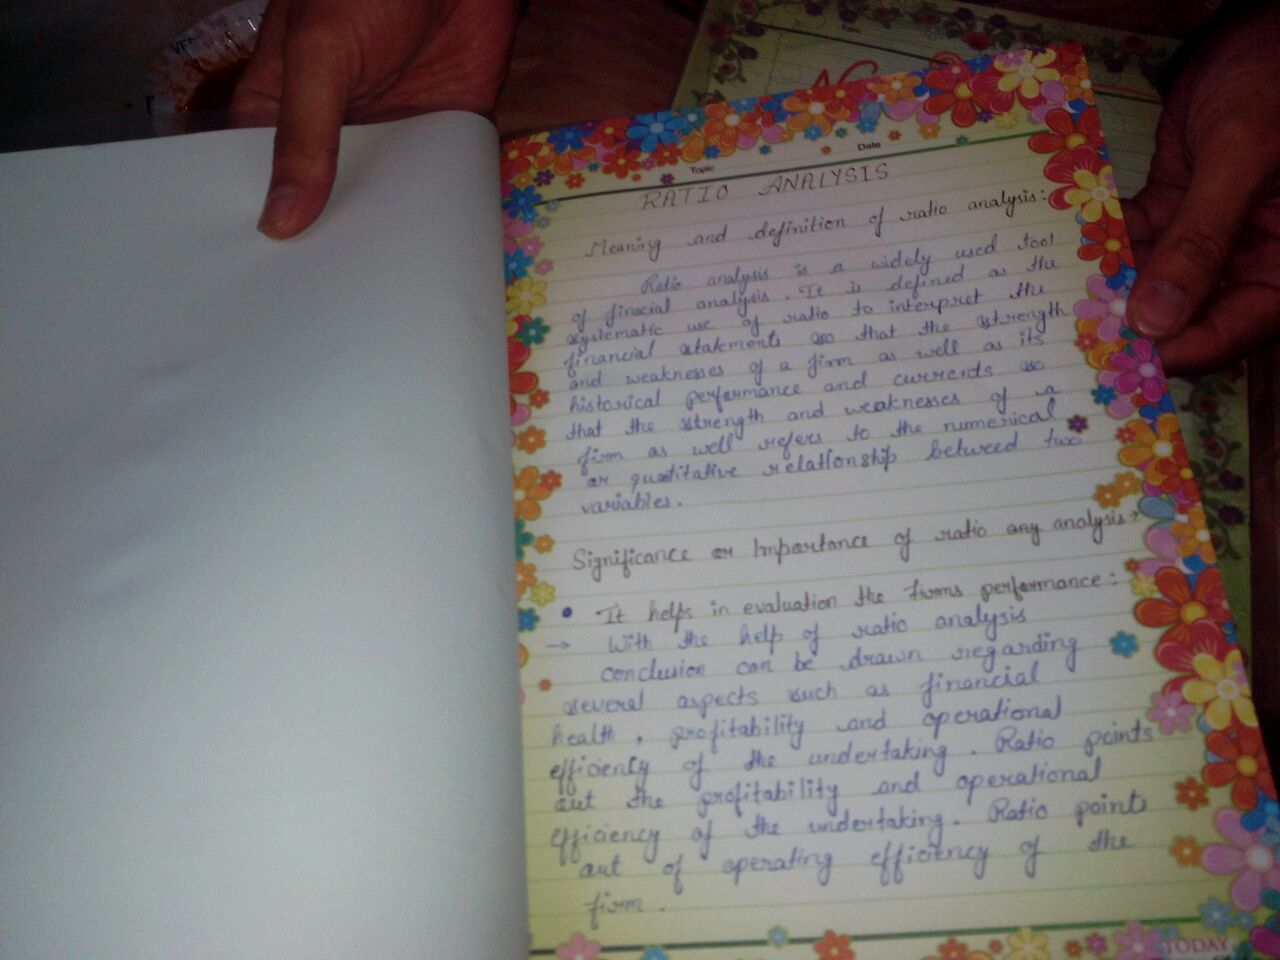 Topic
Date
RATIO ANALYSIS
Meaning and definition of ratio analysis:
Ratio analysis is a widely used tool
of finacial analysis. It is defined as the
systematic use of ratio to interpret the
financial statements so that the strength
and weaknesses of a firm as well as its
historical performance and currents so
that the strength and weaknesses of a
firm as well refers to the numerical
or quatitative relationship betweed two
variables.
Significance or Importance of ratio any analysis→
• It helps in evaluation the firms performance:
→ With the help of ratio analysis
conclusion can be drawn regarding
several aspects such as financial
health, profitability and operational
efficiency of the undertaking. Ratio points
out the profitability and operational
efficiency of the undertaking. Ratio points
out of operating efficiency of the
firm.
TODAY